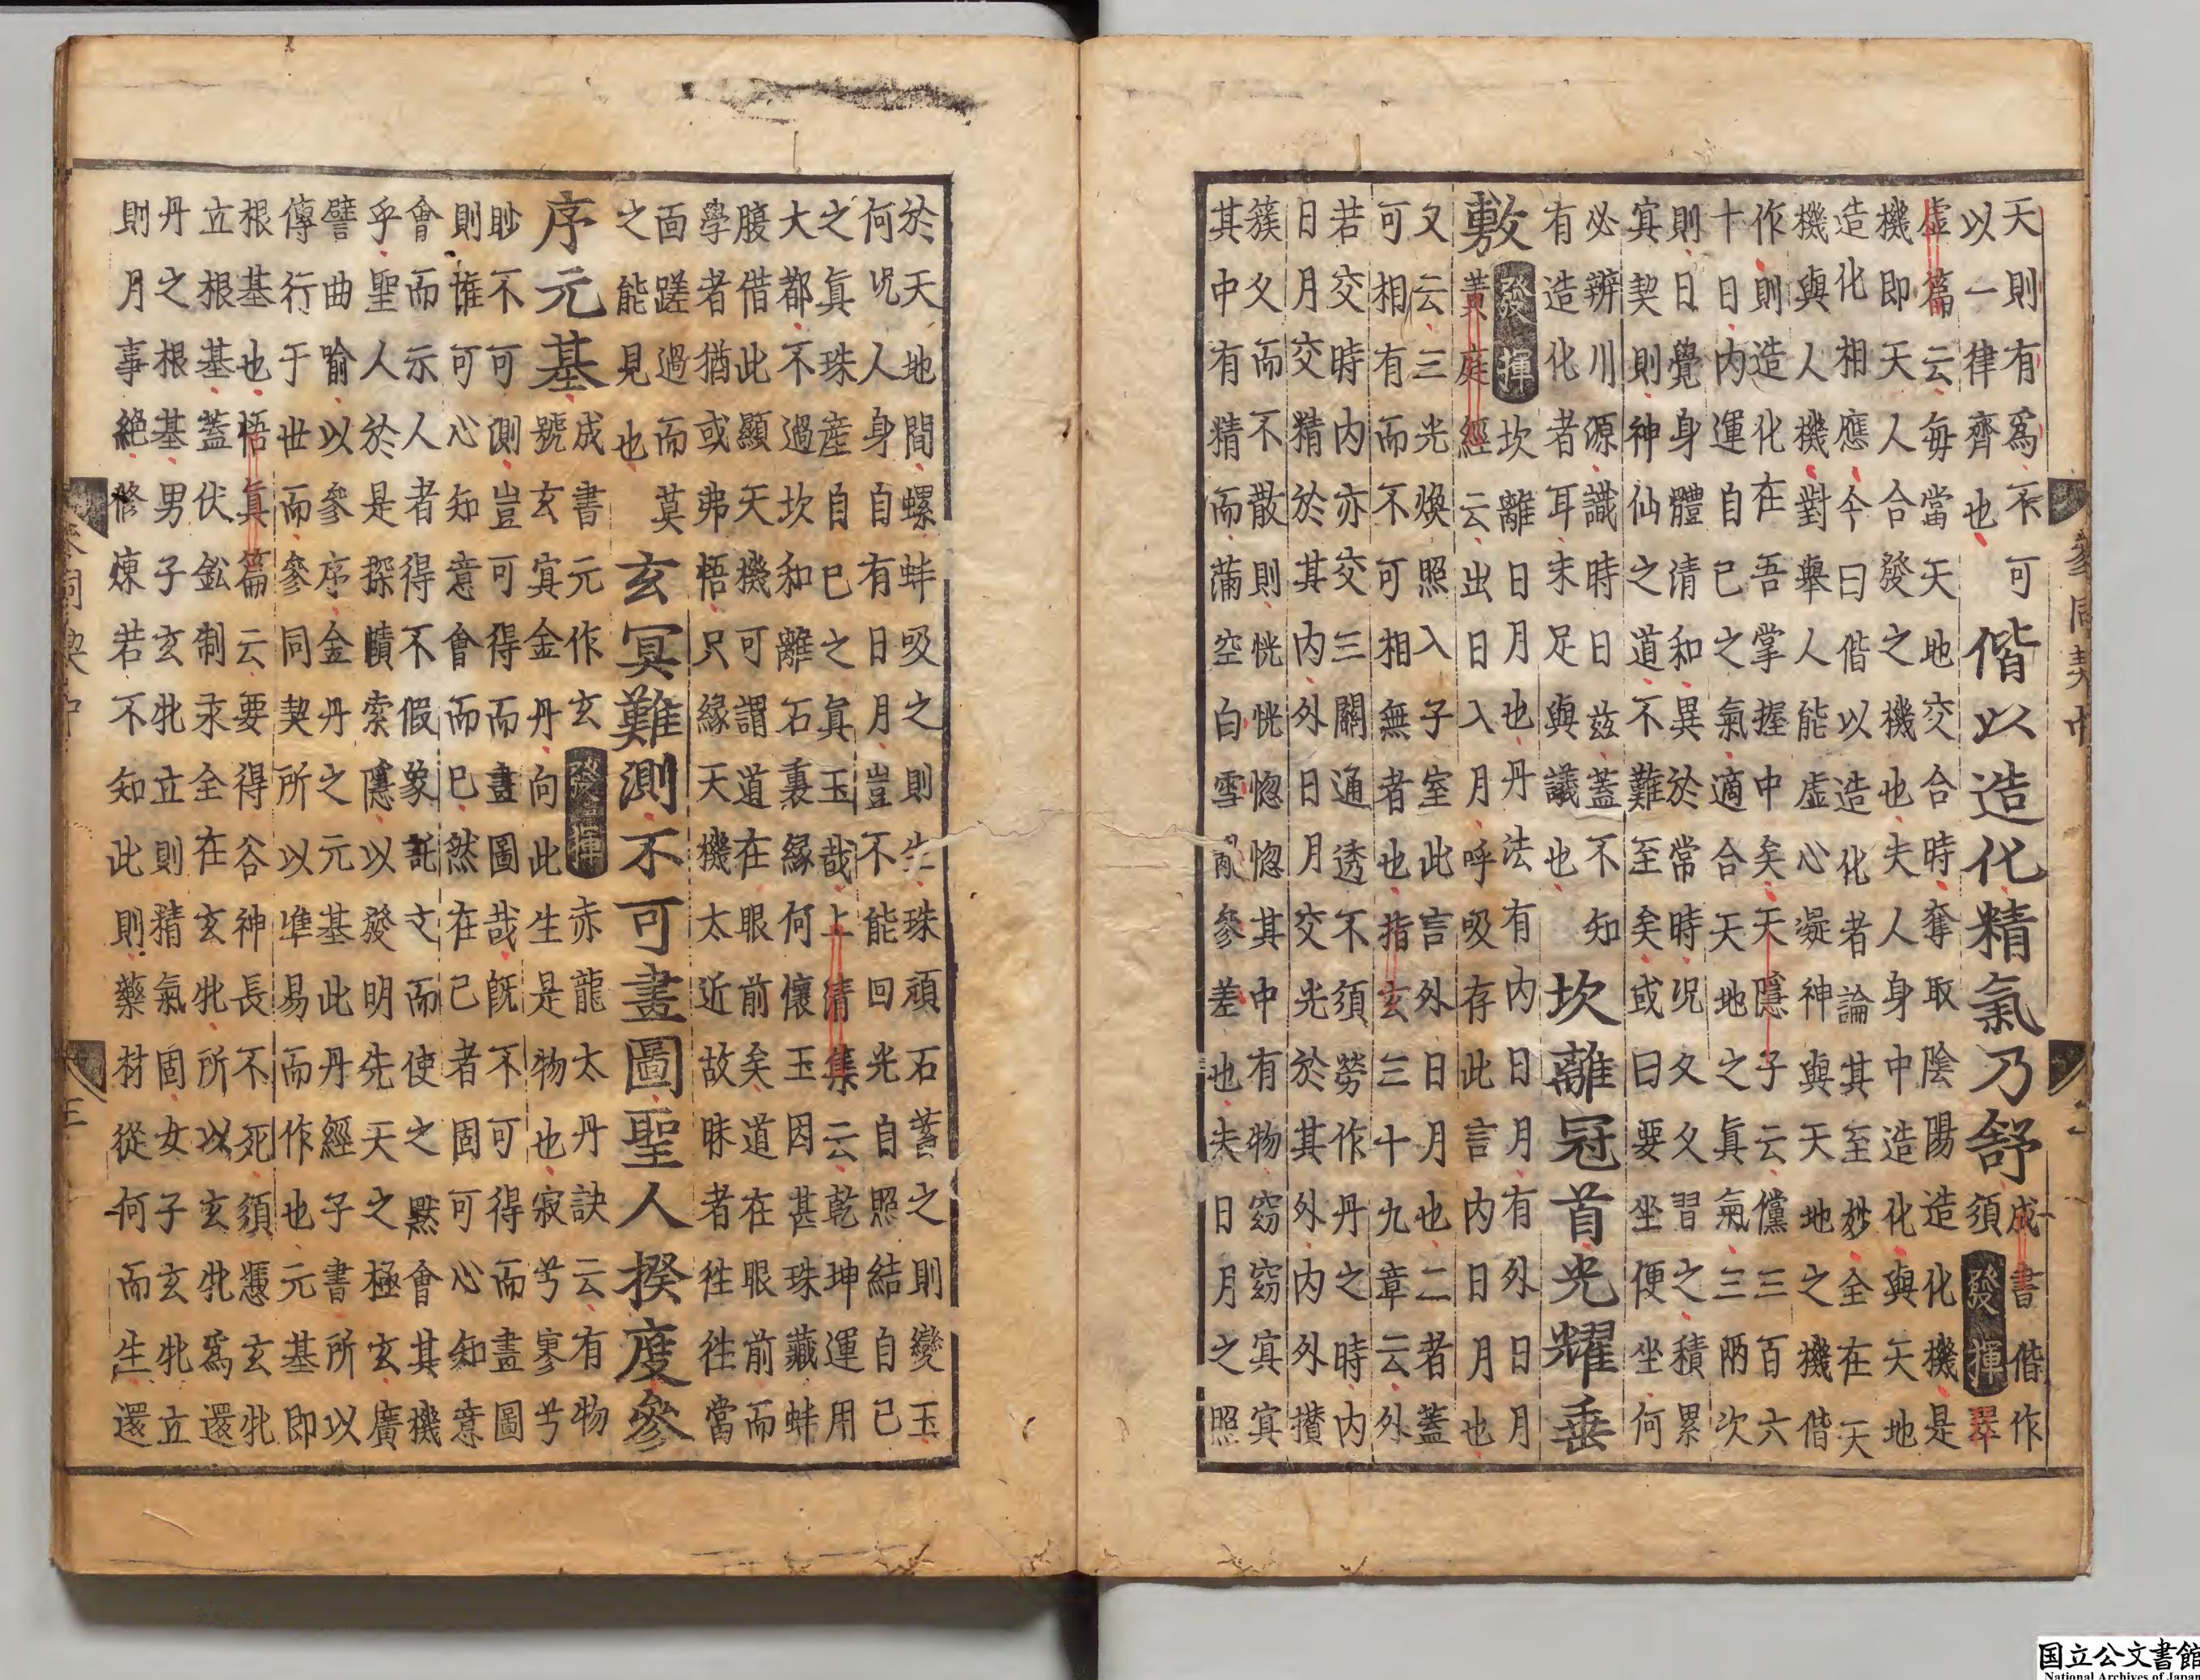 天則有爲不可
以一律齊也
偕以造化精氣乃舒
成書偕作
須發揮翠
虛篇云每當天地交合時奪取陰陽造化機是
機即天人合發之機也夫人身中造化與天地
造化相應今曰偕以造化者論其至妙全在天
機與人機對舉人能虛心凝神與天地之機偕
作則造化在吾掌握中矣天隱子云儻三百六
十日內運自己之氣適合天地之眞氣三兩次
則日覺身體清和異於常時况久久習之積累
寘契則神仙之道不難至矣或曰要坐便坐何
必辨川源識時日茲蓋不知
有造化者耳未足與議也
坎離冠首光耀垂
敷
發揮坎離日月也丹法有內日月有外日月
黃庭經云出日入月呼吸存此言內日月也
又云三光煥照入子室此言外日月也二者蓋
可相有而不可相無者也指玄三十九章云外
若交時內亦交三關通透不須勞作丹之時內
日月交精於其內外日月交光於其外內外攢
簇又而不散則恍恍惚惚其中有物窈窈寘寘
其中有精而滿空白雪亂參差也夫日月之照
參同契中
於天地間螺蚌吸之則生珠頑石蓄之則變玉
何况人身自有日月豈不能回光自照結自己
之眞珠產自己之眞玉哉上清集云乾坤運用
大都不過坎和離石裹緣何懷玉因甚珠藏蚌
腹借此顯天機可謂道在眼前矣道在眼前而
學者猶或弗悟只緣天機太近故昧者往往當
面蹉過而莫
之能見也
玄冥難測不可畫圖聖人揆度參
序元基
成書元作玄發揮赤龍太丹訣云有物
號玄寘金丹向此生是物也寂兮寥兮
眇不可測豈可得而畫圖哉旣不可得而畫圖
則惟可心知意會而已然在己者固可心知意
會而示人者得不假象託文而使之默會其機
乎聖人於是探賾索隱以發明先天之極玄廣
譬曲喻以參序金丹之元基此丹經子書所以
傳行于世而參同契所以準易而作也元基即
根基也悟眞篇云要得谷神長不死須憑玄牝
立根基蓋伏鈆制汞全在玄牝所以玄牝爲還
丹之根基男子玄牝立則精氣固女子玄牝立
則月事絶修煉若不知此則藥材從何而生還
国立公文書館
National Archives of Japan